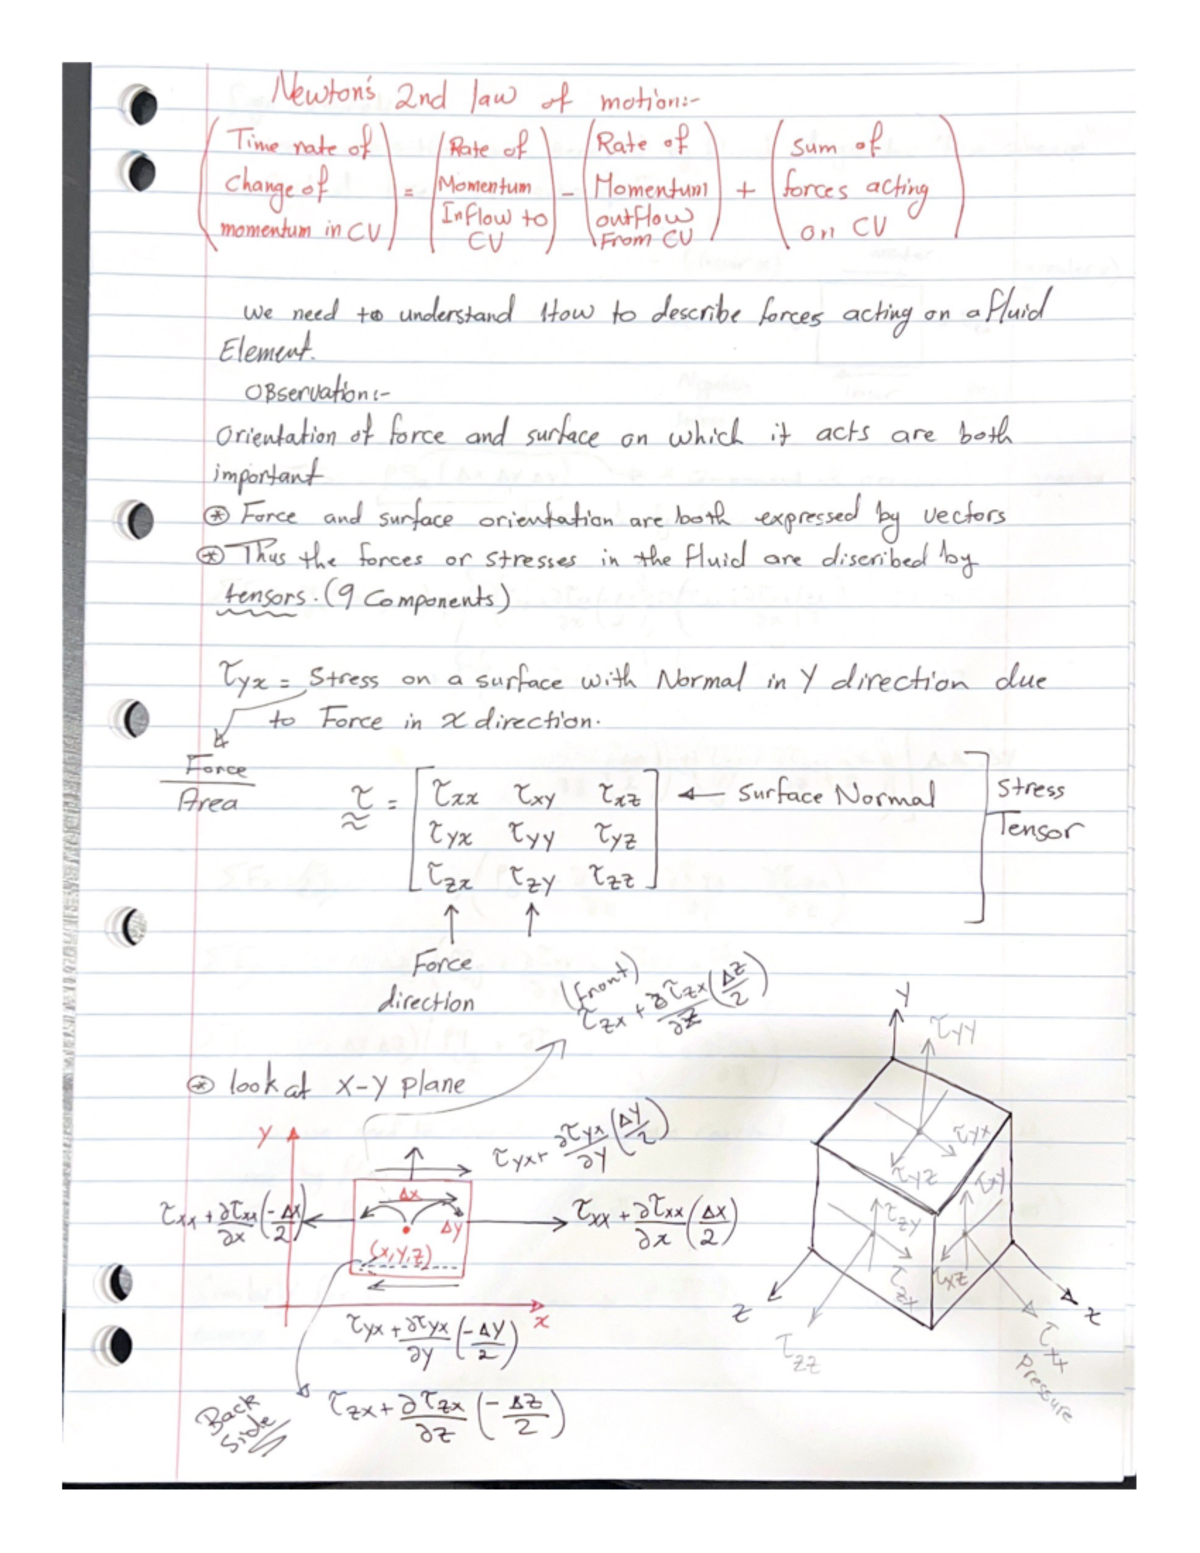 Newton's 2nd law of motion:-
(Time rate of change of momentum in CV) = (Rate of Momentum Inflow to CV) - (Rate of Momentum outflow From CV) + (Sum of forces acting on CV)
we need to understand How to describe forces acting on a fluid
Element.
OBservation:-
Orientation of force and surface on which it acts are both
important
⊛ Force and surface orientation are both expressed by vectors
⊛ Thus the forces or stresses in the fluid are discribed by
tensors. (9 Components)
τyx = Stress on a surface with Normal in Y direction due
to Force in x direction.
Force
Area
τ =
τxx τxy τxz ← Surface Normal
τyx τyy τyz
τzx τzy τzz
Stress
Tensor
↑ ↑
Force
direction
(front)
τzx + ∂τzx/∂z (Δz/2)
⊛ look at x-y plane
Y
τyx + ∂τyx/∂y (ΔY/2)
τxx + ∂τxx/∂x (-Δx/2)
Δx
Δy
(x,y,z)
τxx + ∂τxx/∂x (Δx/2)
x
τyx + ∂τyx/∂y (-ΔY/2)
Back
Side
τzx + ∂τzx/∂z (-Δz/2)
Y
τyy
τyx
τyz
τxy
τzy
τzx
τxz
z
z
τzz
τxx
Pressure